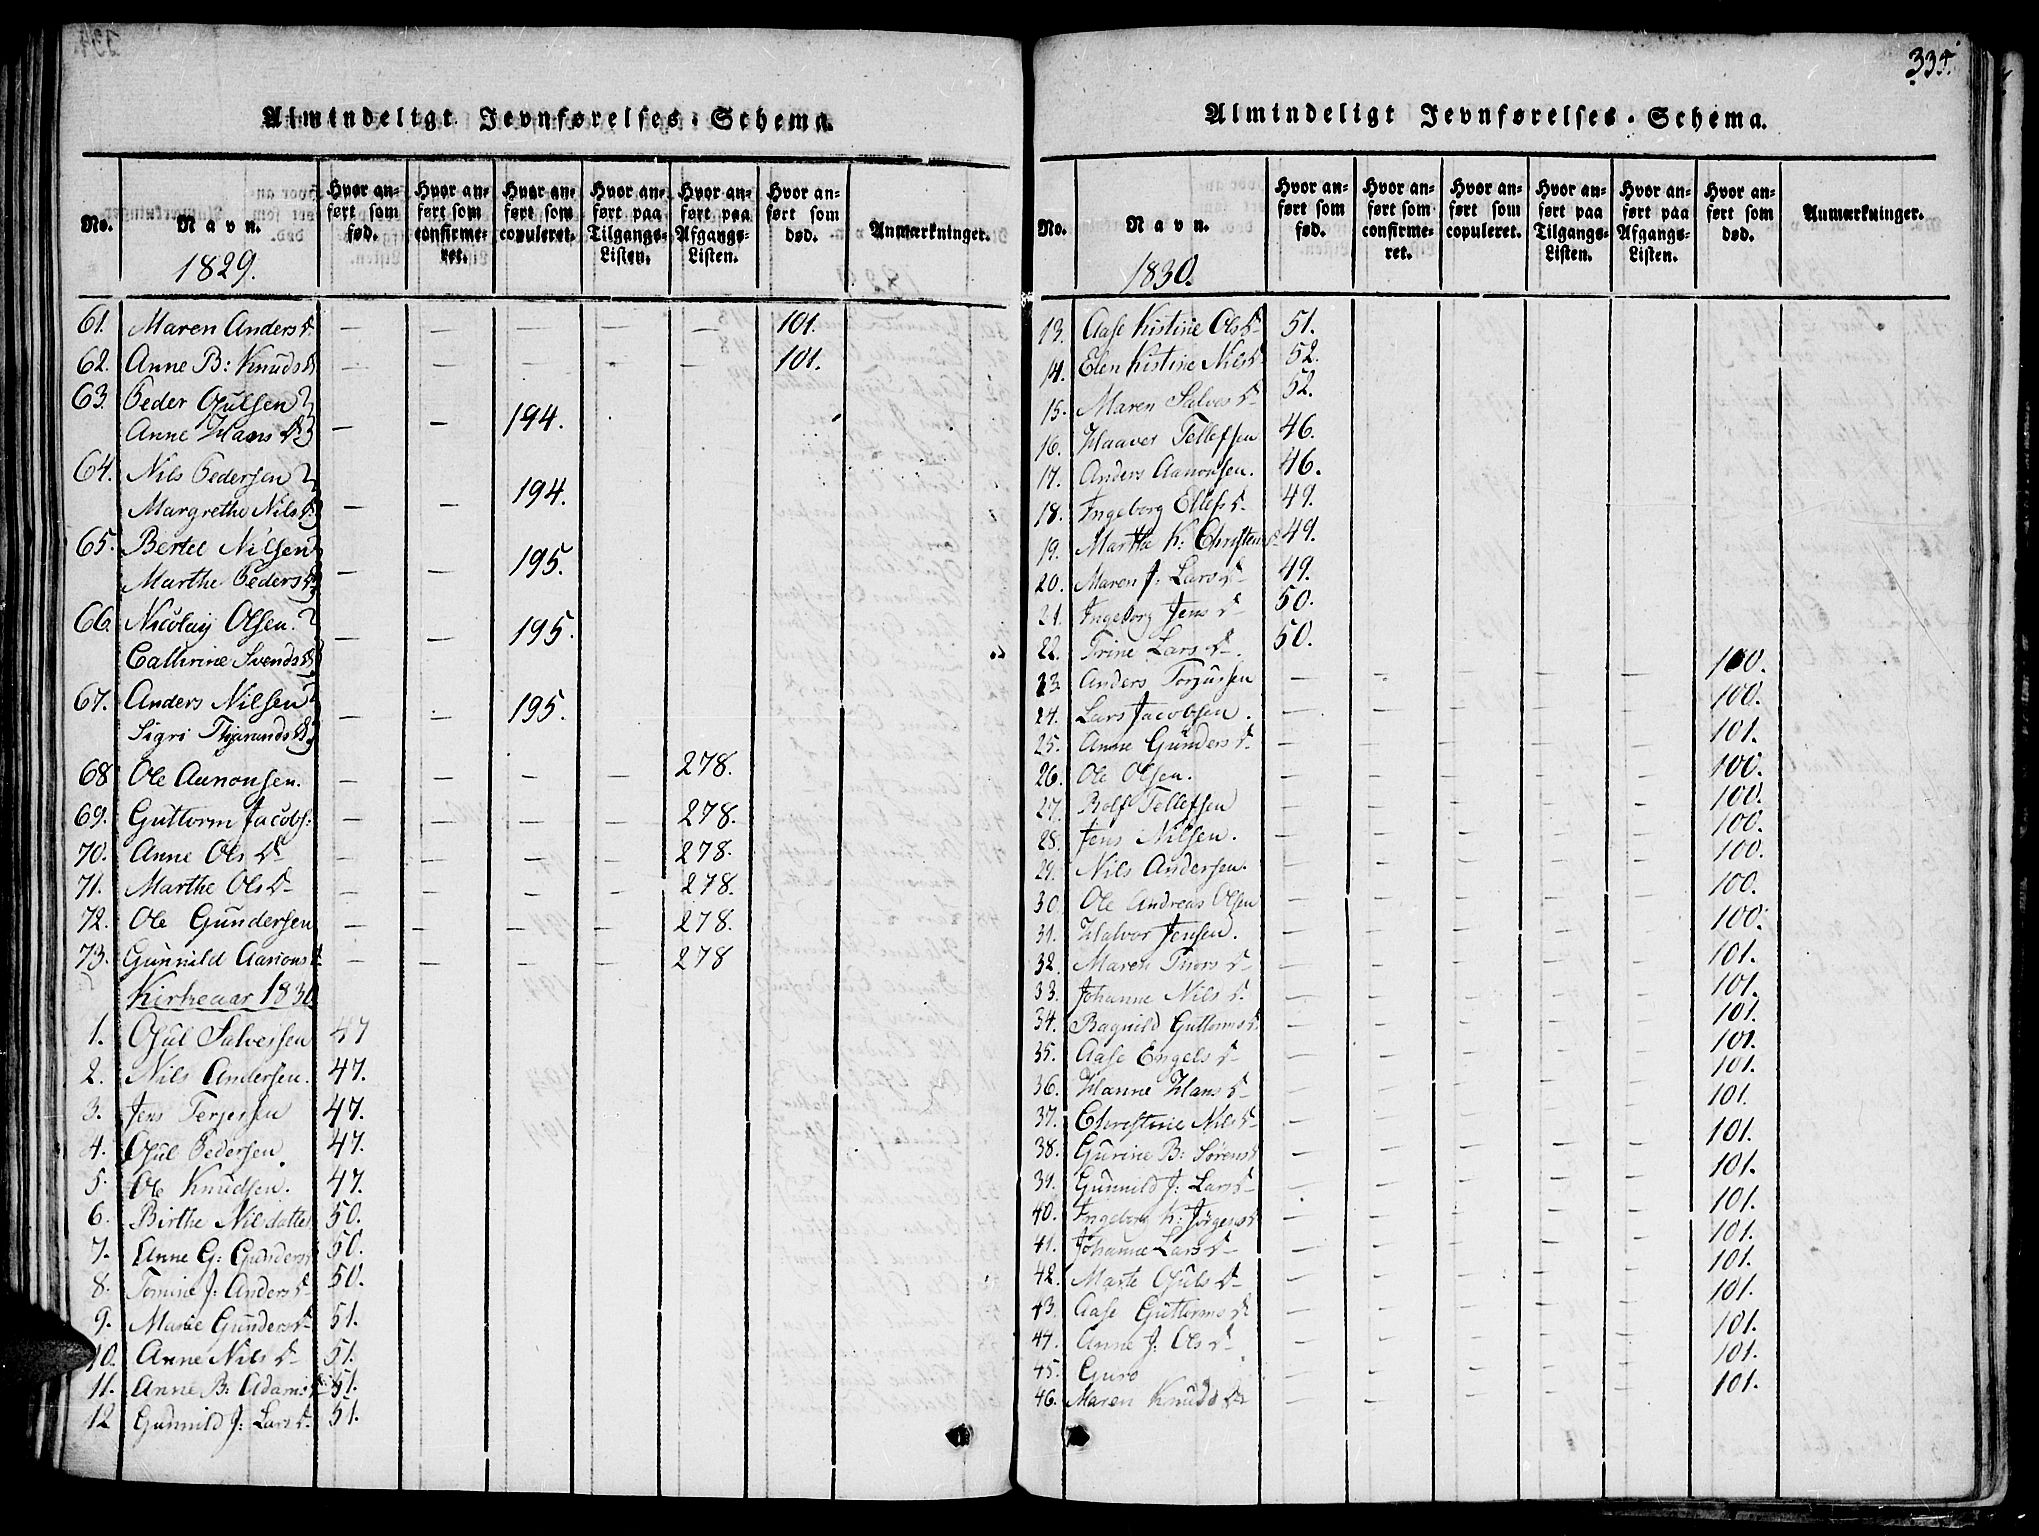 Almindeligt Jevnførelses-Schema.
No.
Navn.
1829.
Hvor anført som fød.
Hvor anført som confirmeret.
Hvor anført som copuleret.
Hvor anført paa Tilgangs-Listen.
Hvor anført paa Afgangs-Listen.
Hvor anført som død.
Anmærkninger.
61. Maren Anders D. — — — — — 101.
62. Anne B: Knuds D — — — — — 101.
63. Peder Osulsen
Anne Hans D. — — 194.
64. Nils Pedersen
Margrethe Nils D. — — 194.
65. Bertel Nilsen
Marthe Peders D. — — 195.
66. Nicolaij Olsen.
Cathrine Svends D. — — 195.
67. Anders Nilsen
Sigri Thjarands D. — — 195.
68 Ole Aanonsen. — — — — 278.
69. Guttorm Jacobs: — — — — 278.
70. Anne Ols D — — — — 278.
71. Marthe Ols D — — — — 278.
72. Ole Gundersen — — — — 278.
73. Gunnild Aanons D — — — — 278
Kirkeaar 1830
1. Osul Salvessen 47
2. Nils Andersen. 47.
3. Jens Terjesen 47.
4. Osul Pedersen 47.
5. Ole Knudsen. 47.
6. Birthe Nilsdatter 50.
7. Anne G: Gunders D 50.
8. Tomine J: Anders D 50.
9. Marie Gunders D 51.
10. Anne Nils D 51.
11. Anne B: Adams D 51.
12 Gunnild J: Lars D 51.
335.
Almindeligt Jevnførelses-Schema.
No.
Navn.
1830.
Hvor anført som fød.
Hvor anført som confirmeret.
Hvor anført som copuleret.
Hvor anført paa Tilgangs-Listen.
Hvor anført paa Afgangs-Listen.
Hvor anført som død.
Anmærkninger.
13. Aase Kistine Ols D 51.
14. Elen Kistine Nils D 52.
15. Maren Salves D 52.
16. Haaver Tellefsen 46.
17. Anders Aanonsen. 46.
18. Ingeborg Ellefs D. 49.
19. Martha K: Christens D 49.
20. Maren J: Lars D 49.
21. Ingeborg Jens D 50.
22. Trine Lars D. 50.
23. Anders Torjussen — — — — — 100.
24. Lars Jacobsen. — — — — — 100.
25. Anne Gunders D. — — — — — 101.
26. Ole Olsen. — — — — — 100.
27. Rolf Tellefsen — — — — — 100.
28. Jens Nilsen. — — — — — 100.
29. Nils Andersen. — — — — — 100.
30. Ole Andreas Olsen — — — — — 100.
31. Halvor Jensen. — — — — — 100.
32. Maren Thors D — — — — — 101.
33. Johanne Nils D. — — — — — 101.
34. Ragnild Guttorms D. — — — — — 101.
35. Aase Engels D — — — — — 101.
36. Hanne Hans D — — — — — 101.
37. Christine Nils D — — — — — 101.
38. Gurine B: Sørens D — — — — — 101.
39. Gunnild J: Lars D — — — — — 101.
40. Ingeborg K: Jørgens D — — — — — 101.
41. Johanne Lars D — — — — — 101.
42. Marte Osuls D — — — — — 101.
43. Aase Guttorms D — — — — — 101.
44. Anne J: Ols D — — — — — 101.
45. Guro — — — — — 101.
46. Maren Knuds D — — — — — 101.